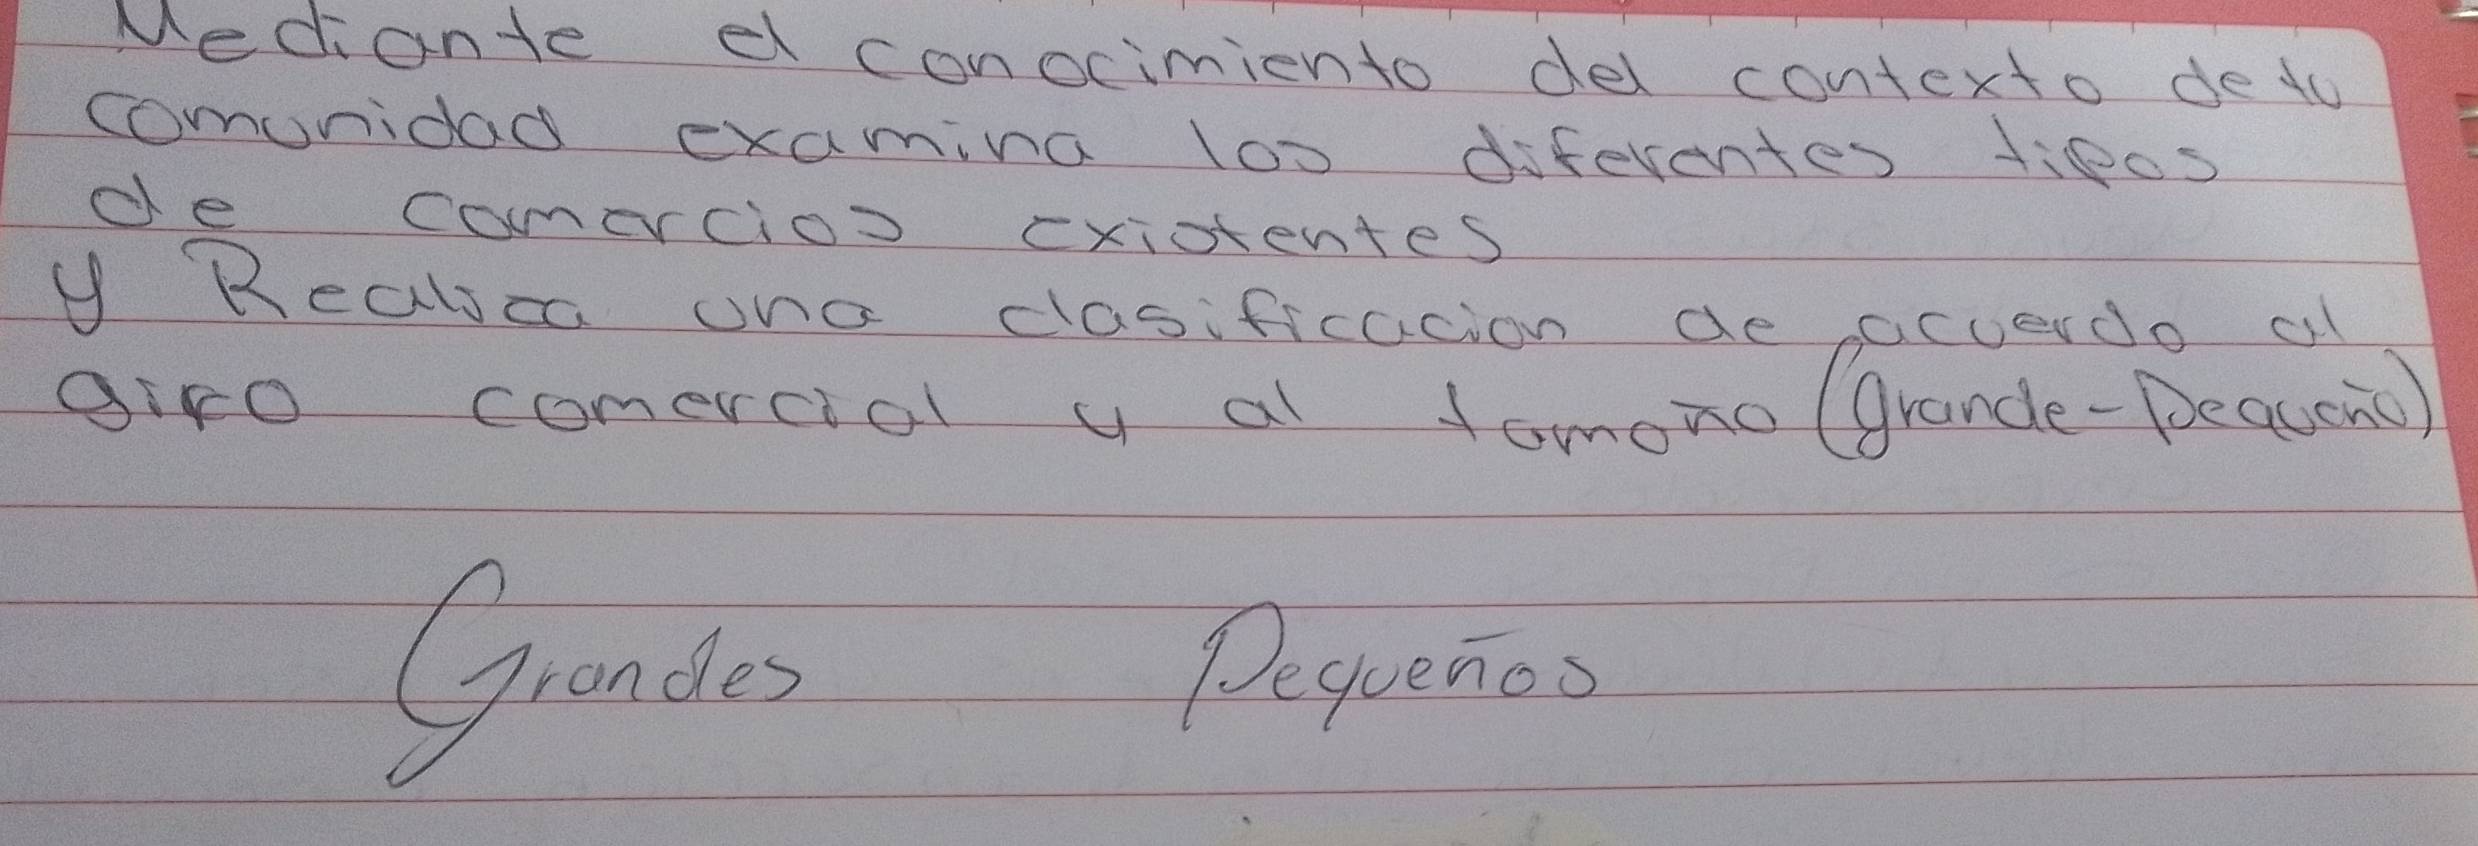 Mediante el conocimiento del contexto de tu
comunidad examina los diferentes tipos
de comercios existentes
y Realiza una clasificacion de acuerdo al
giro comercial y al tamaño (grande-Pequeño)
Grandes Pequeños